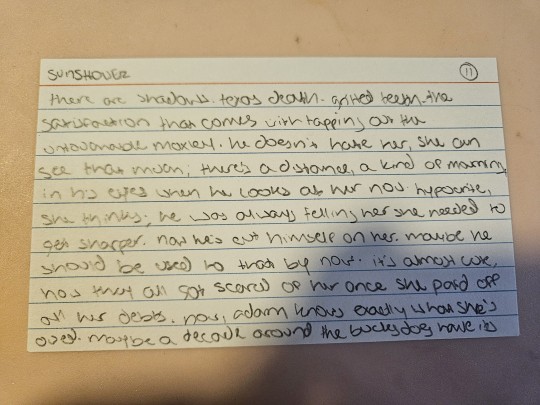 SUNSHOWER
11
there are shadows. texas death. gritted teeth. the
satisfaction that comes with tapping out the
untouchable maxiel. he doesn't hate her, she can
see that much; there's a distance, a kind of mourning
in his eyes when he looks at her now. hypocrite,
she thinks; he was always telling her she needed to
get sharper. now he's cut himself on her. maybe he
should be used to that by now. it's almost cute,
how they all got scared of her once she paid off
all her debts. now, adam knows exactly what she's
owed. maybe a decade around the buckys does have its